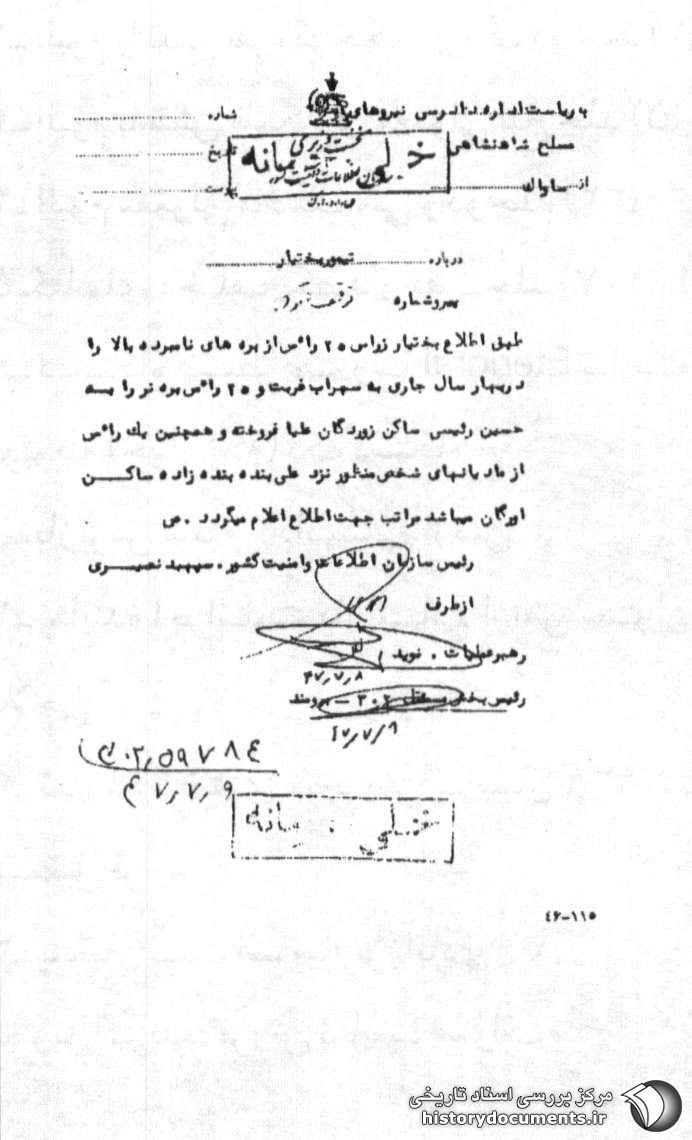 به ریاست اداره دادرسی نیروهای
مسلح شاهنشاهی
از ساواك
شماره
تاریخ
پیوست
نخست وزیری
سازمان اطلاعات و امنیت کشور
س.ا.و.ا.ك
خیلی محرمانه
درباره تیمور بختیار
پیرو شماره
طبق اطلاع بختیار زراس ۲۵ راس از بره های نامبرده بالا را
در بهار سال جاری به سهراب غربت و ۲۵ راس بره نر را بسه
حسین رئیسی ساکن زوردگان علیا فروخته و همچنین یك راس
از مادیانهای شخص منظور نزد علی بنده بنده زاده ساکــــن
اورگان میباشد مراتب جهت اطلاع اعلام میگردد . ص
رئیس سازمان اطلاعات و امنیت کشور . سپهبد نصیـــری
از طرف
رهبر عملیات . نوید
۴۷٫۷٫۸
رئیس بخش مستقل ۳۰۲ – برومند
۴۷/۷/۸
۴۷٫۷٫۹
خیلی محرمانه
٤۶–۱۱۵
مرکز بررسی اسناد تاریخی
historydocuments.ir